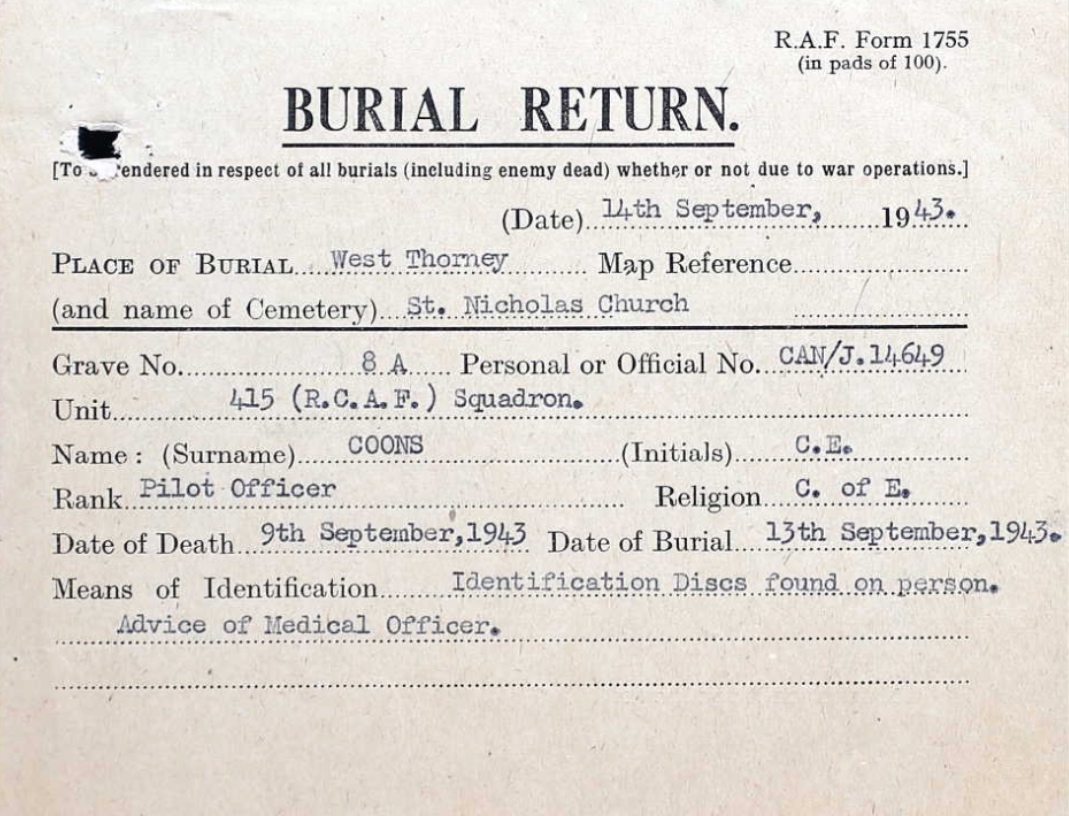 R.A.F. Form 1755
(in pads of 100).
BURIAL RETURN.
[To endered in respect of all burials (including enemy dead) whether or not due to war operations.]
(Date) 14th September, 1943.
PLACE OF BURIAL West Thorney Map Reference
(and name of Cemetery) St. Nicholas Church
Grave No. 8 A Personal or Official No. CAN/J.14649
Unit 415 (R.C.A.F.) Squadron.
Name: (Surname) COONS (Initials) C.E.
Rank Pilot Officer Religion C. of E.
Date of Death 9th September,1943 Date of Burial 13th September,1943.
Means of Identification Identification Discs found on person.
Advice of Medical Officer.